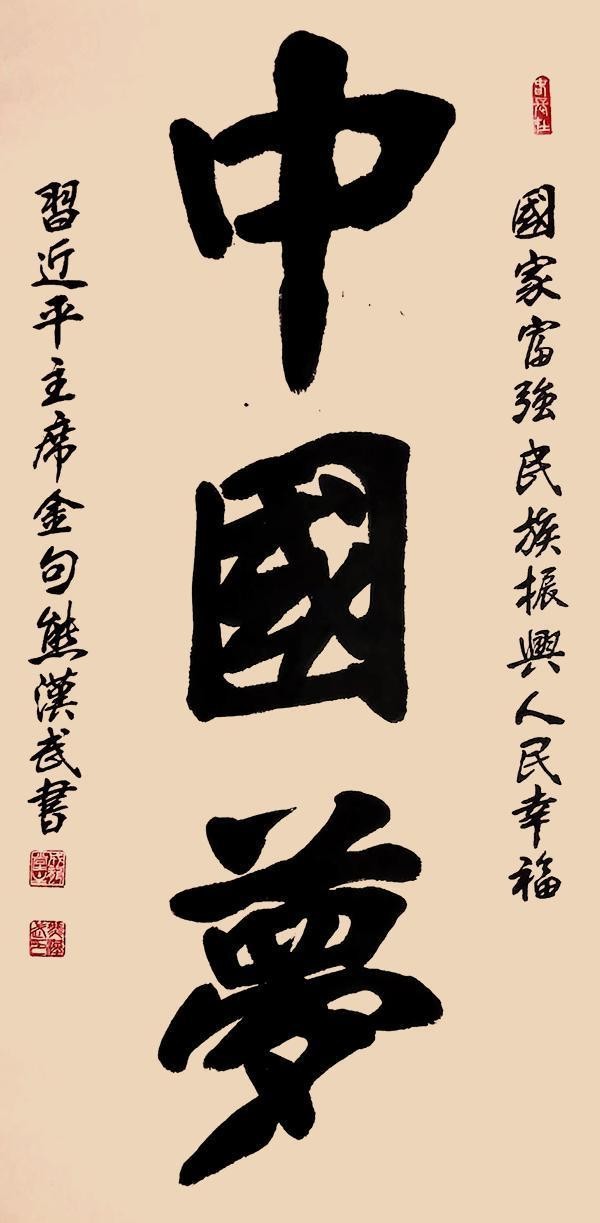 國家富強民族振興人民幸福
中國夢
習近平主席金句熊漢武書